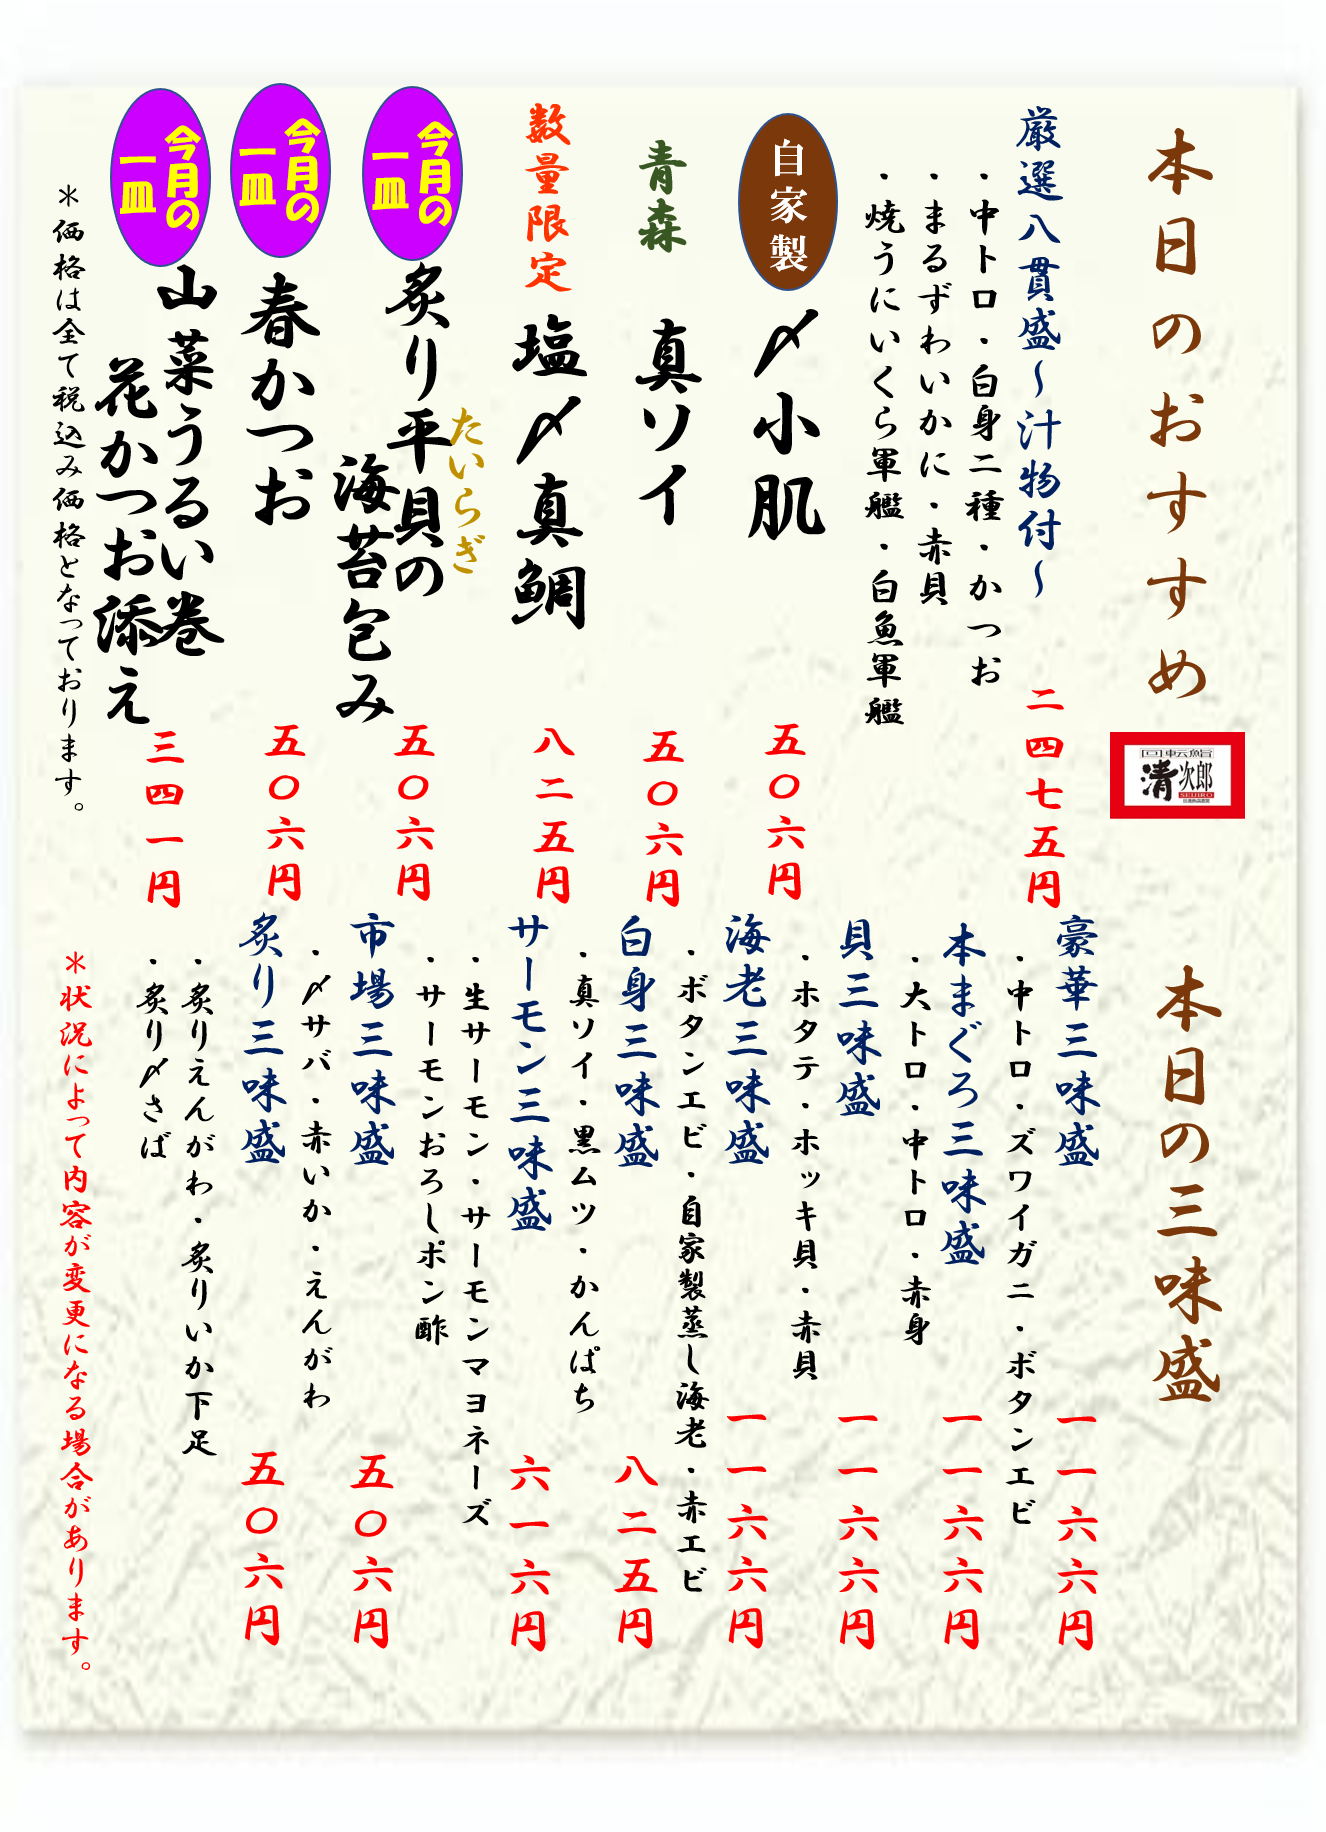 本日のおすすめ
回転鮨
清次郎
SEIJIRO
厳選八貫盛～汁物付～
二四七五円
・中トロ・白身二種・かつお
・まるずわいかに・赤貝
・焼うにいくら軍艦・白魚軍艦
自家製
〆小肌
五〇六円
青森
真ソイ
五〇六円
数量限定
塩〆真鯛
八二五円
今月の
一皿
たいらぎ
炙り平貝の
海苔包み
五〇六円
今月の
一皿
春かつお
五〇六円
今月の
一皿
山菜うるい巻
花かつお添え
三四一円
＊価格は全て税込み価格となっております。
本日の三味盛
豪華三味盛
一一六六円
・中トロ・ズワイガニ・ボタンエビ
本まぐろ三味盛
一一六六円
・大トロ・中トロ・赤身
貝三味盛
一一六六円
・ホタテ・ホッキ貝・赤貝
海老三味盛
一一六六円
・ボタンエビ・自家製蒸し海老・赤エビ
白身三味盛
八二五円
・真ソイ・黒ムツ・かんぱち
サーモン三味盛
六一六円
・生サーモン・サーモンマヨネーズ
・サーモンおろしポン酢
市場三味盛
五〇六円
・〆サバ・赤いか・えんがわ
炙り三味盛
五〇六円
・炙りえんがわ・炙りいか下足
・炙り〆さば
＊状況によって内容が変更になる場合があります。